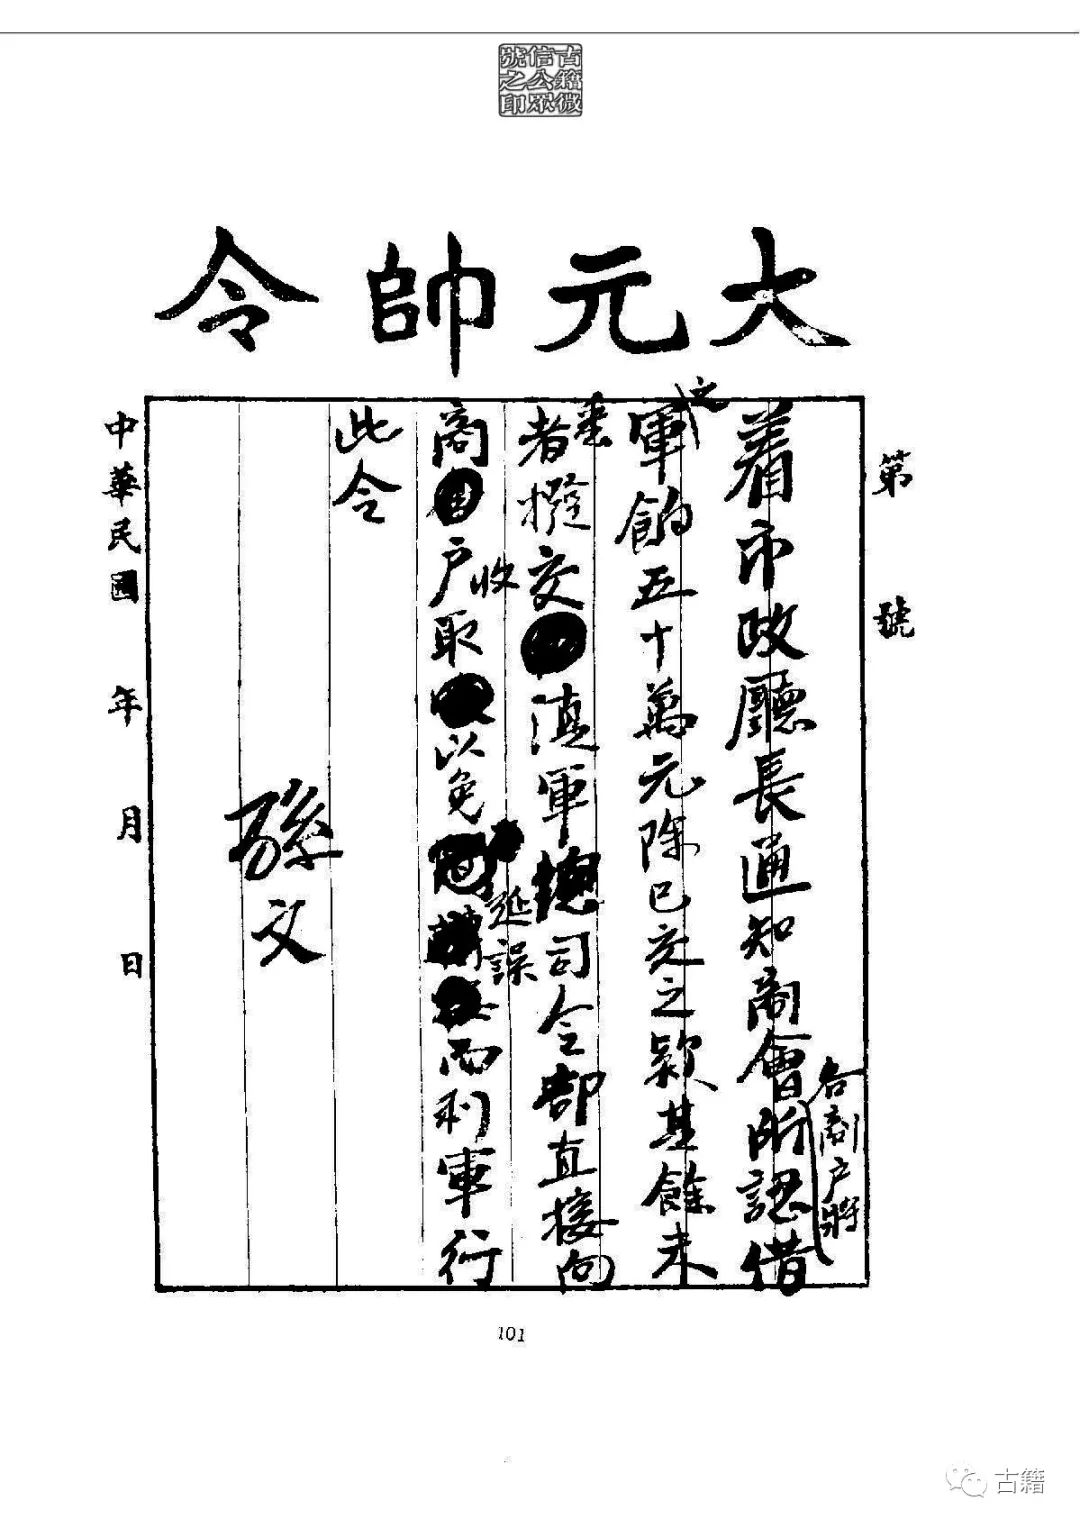 古籍微
信公眾
號之印
大元帥令
第 號
着市政廳長通知商會各商户將所認借
之軍餉五十萬元除已交之款其餘未
交者悉撥交滇軍總司令部直接向
商户收取以免延誤而利軍行
此令
孫文
中華民國 年 月 日
101
古籍